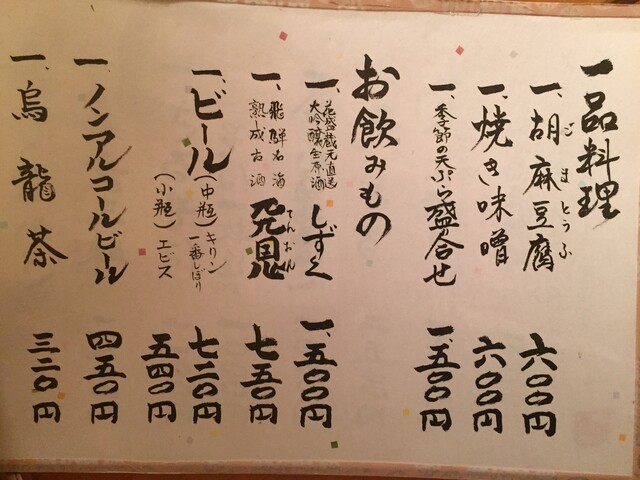 一品料理
一、胡麻豆腐 六〇〇円
ごまとうふ
一、焼き味噌 六〇〇円
一、季節の天ぷら盛合せ 一、五〇〇円
お飲みもの
一、花盛蔵元直送
大吟醸生原酒
しずく 一、五〇〇円
一、飛騨名酒
熟成古酒
てんおん
七五〇円
一、ビール(中瓶)キリン
一番しぼり
七二〇円
(小瓶)エビス 五四〇円
一、ノンアルコールビール 四五〇円
一、烏龍茶 三二〇円